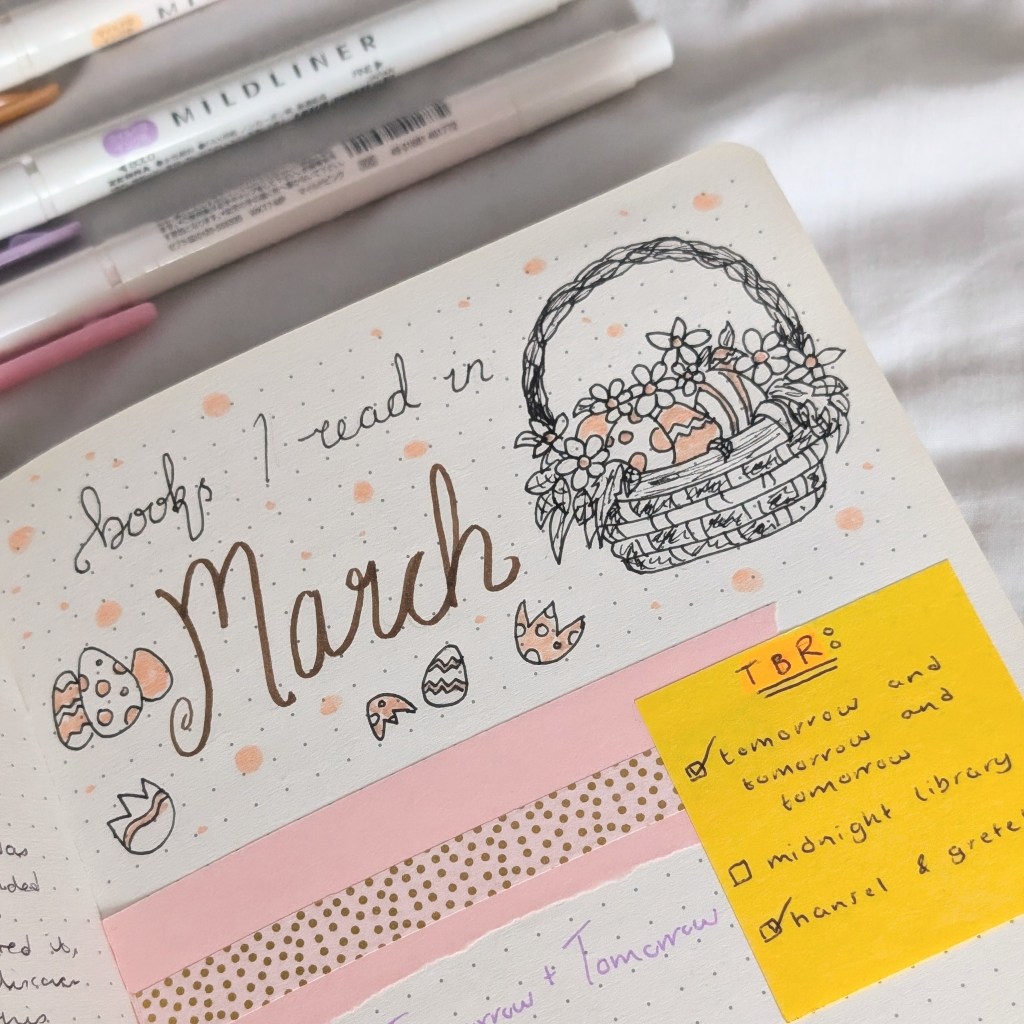 MILDLINER
books I read in
March
TBR:
tomorrow and
tomorrow and
tomorrow
midnight library
hansel & gretel
+ Tomorrow